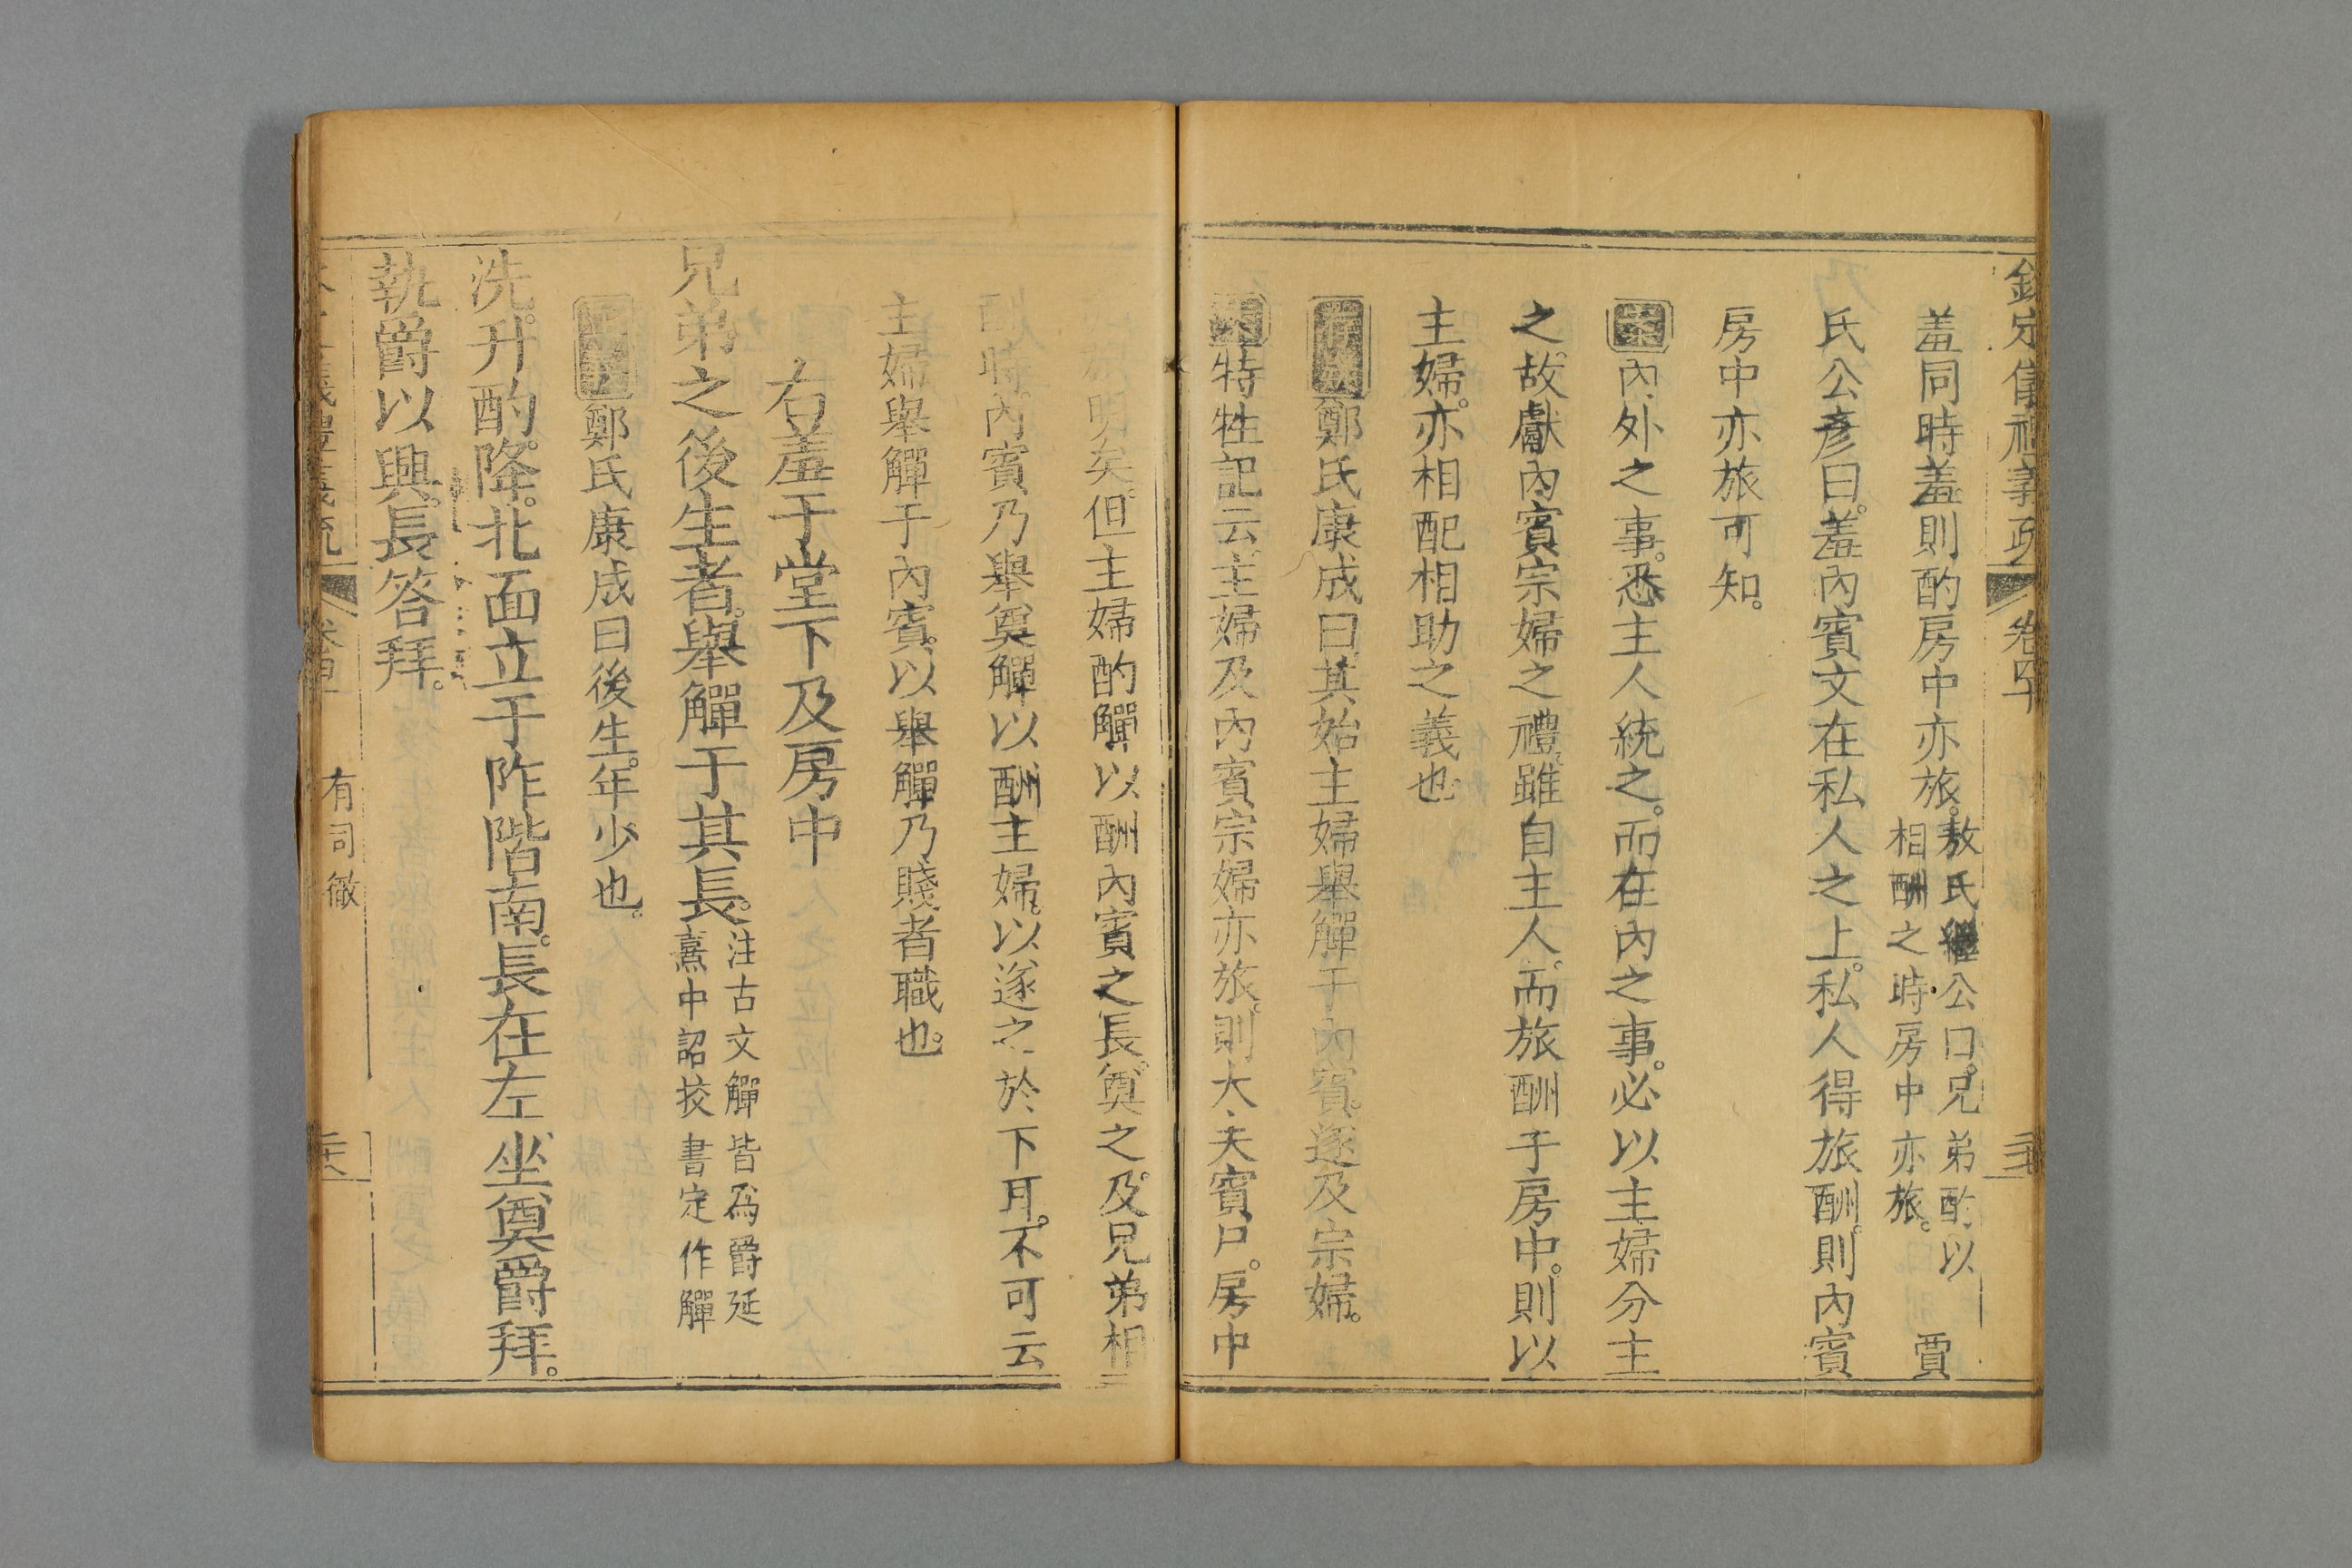 欽定儀禮義疏 卷四十
羞同時羞則酌房中亦旅。敖氏繼公曰。兄弟酌以
相酬之時房中亦旅。 賈
氏公彥曰。羞內賓文在私人之上。私人得旅酬。則內賓
房中亦旅可知。
案內外之事。悉主人統之。而在內之事。必以主婦分主
之。故獻內賓宗婦之禮。雖自主人。而旅酬于房中。則以
主婦。亦相配相助之義也
鄭氏康成曰其始主婦舉觶于內賓。遂及宗婦。
案特牲記云主婦及內賓宗婦亦旅。則大夫賓尸。房中
明矣。但主婦酌觶以酬內賓之長。奠之。及兄弟相
時。內賓乃舉奠觶以酬主婦。以遂之於下耳。不可云
主婦舉觶于內賓。以舉觶乃賤者職也。
右羞于堂下及房中
兄弟之後生者。舉觶于其長。注古文觶皆爲爵延
熹中詔挍書定作觶
鄭氏康成曰後生。年少也。
洗。升酌。降。北面立于阼階南。長在左。坐奠爵拜。
執爵以興。長答拜。
有司徹